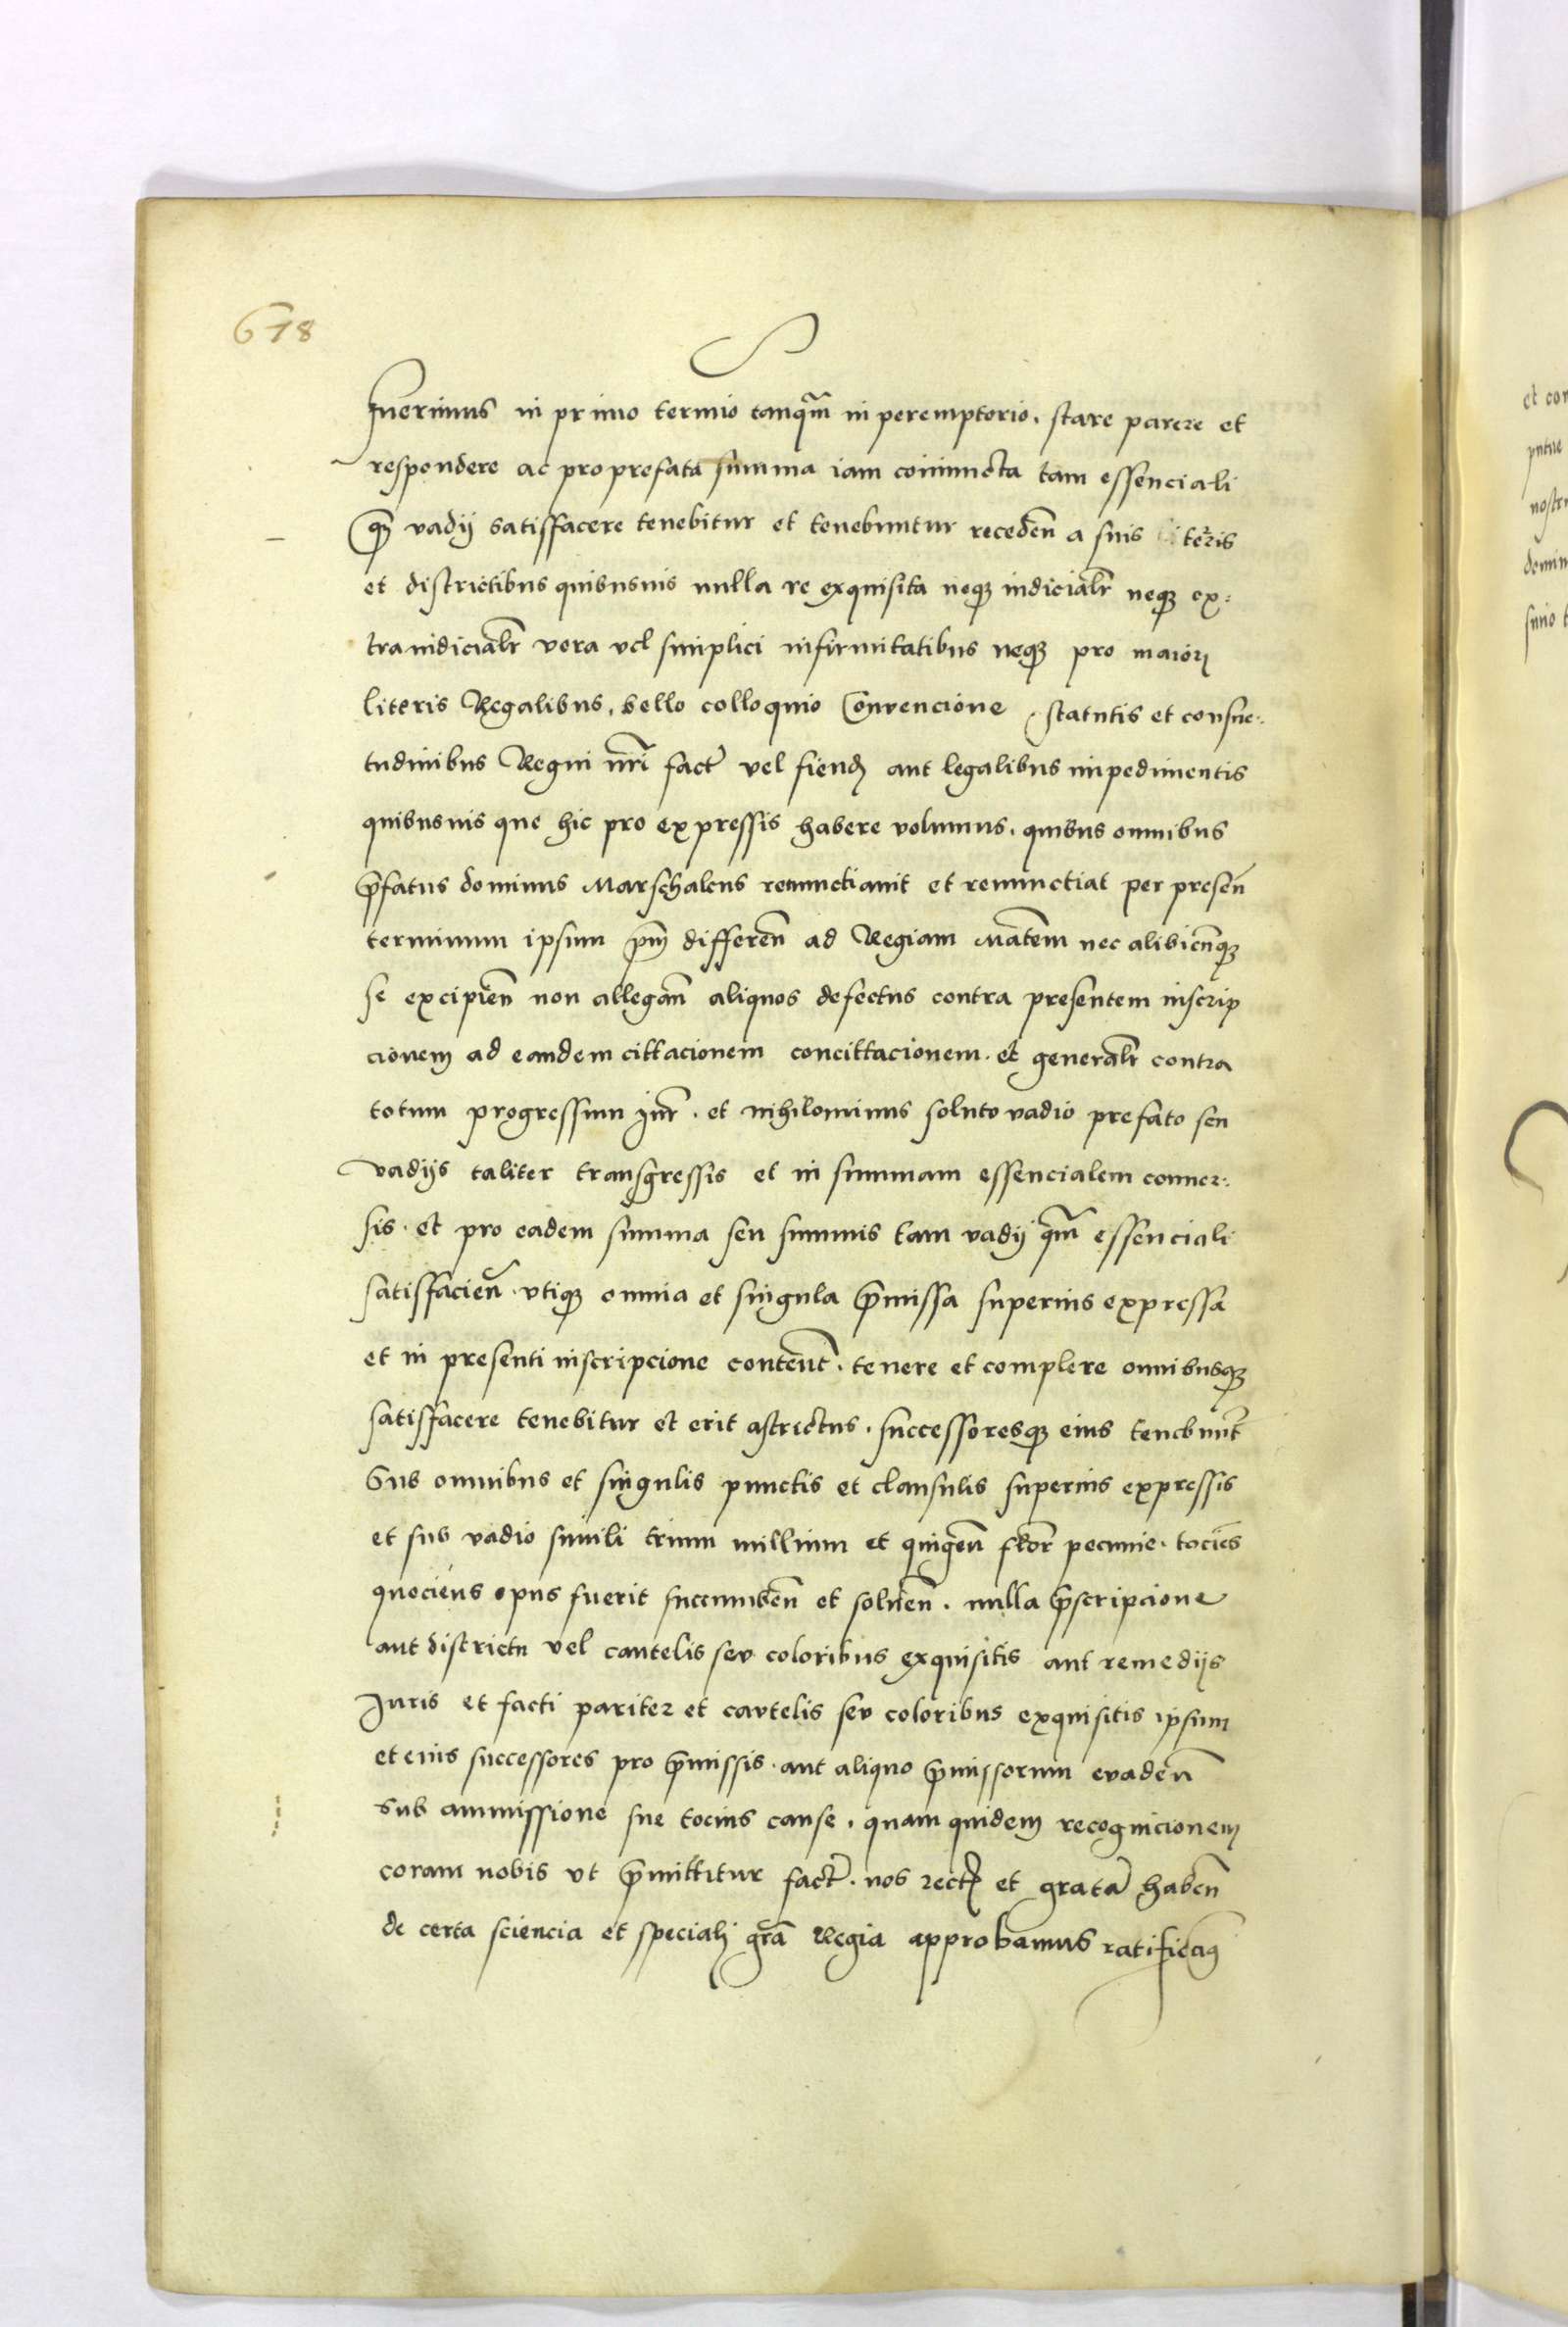 678
fuerimus in primo termio tanq̃m in peremptorio. stare parere et
respondere ac pro prefata summa iam coniuncta tam essenciali
q̃ vadij satisffacere tenebitur et tenebuntur receden̄ a suis literis
et districtibus quibusuis nulla re exquisita neqꝫ iudicialr̄ neqꝫ ex:
traiudicialr̄ vera vel simplici infirmitatibus neqꝫ pro maiori
literis Regalibus, bello colloquio Convencione, statutis et consue:
tudinibus Regni nr̄i fact̄ vel fiend aut legalibus impedimentis
quibusuis que hic pro expressis habere volumus. quibus omnibus
p̄fatus dominus Marschalcus renunctiauit et renunctiat per presen̄
terminum ipsum p̄m differen̄ ad Regiam Matem̄ nec alibicūqꝫ
se excipien̄ non allegan̄ aliquos defectus contra presentem inscrip
cionem ad eandem cittacionem concittacionem. et generalr̄ contra
totum progressum Jur̄. et nihilominus soluto vadio prefato seu
vadijs taliter transgressis et in summam essencialem conuer:
sis. et pro eadem summa seu summis tam vadij q̃m essenciali
satisffacien̄. vtiqꝫ omnia et singula p̄missa superius expressa
et in presenti inscripcione content̄. tenere et complere omnibusqꝫ
satisffacere tenebitur et erit astrictus. successoresqꝫ eius tenebunt̄
Sub omnibus et singulis punctis et clausulis superius expressis
et sub vadio simili trium millium et quingen̄ flor̄ pecunie. tocies
quociens opus fuerit succumben̄ et soluen̄. nulla p̄scripcione
aut districtu vel cautelis seu coloribus exquisitis aut remedijs
Juris et facti pariter et cautelis seu coloribus exquisitis ipsum
et eius successores pro p̄missis. aut aliquo p̄missorum evaden̄
sub ammissione sue tocius cause. quam quidem recognicionem
coram nobis vt p̄mittitur fact̄. nos rect et grata haben̄
de certa sciencia et speciali gr̄a Regia approbamus ratificaꝰ
et con
nostr